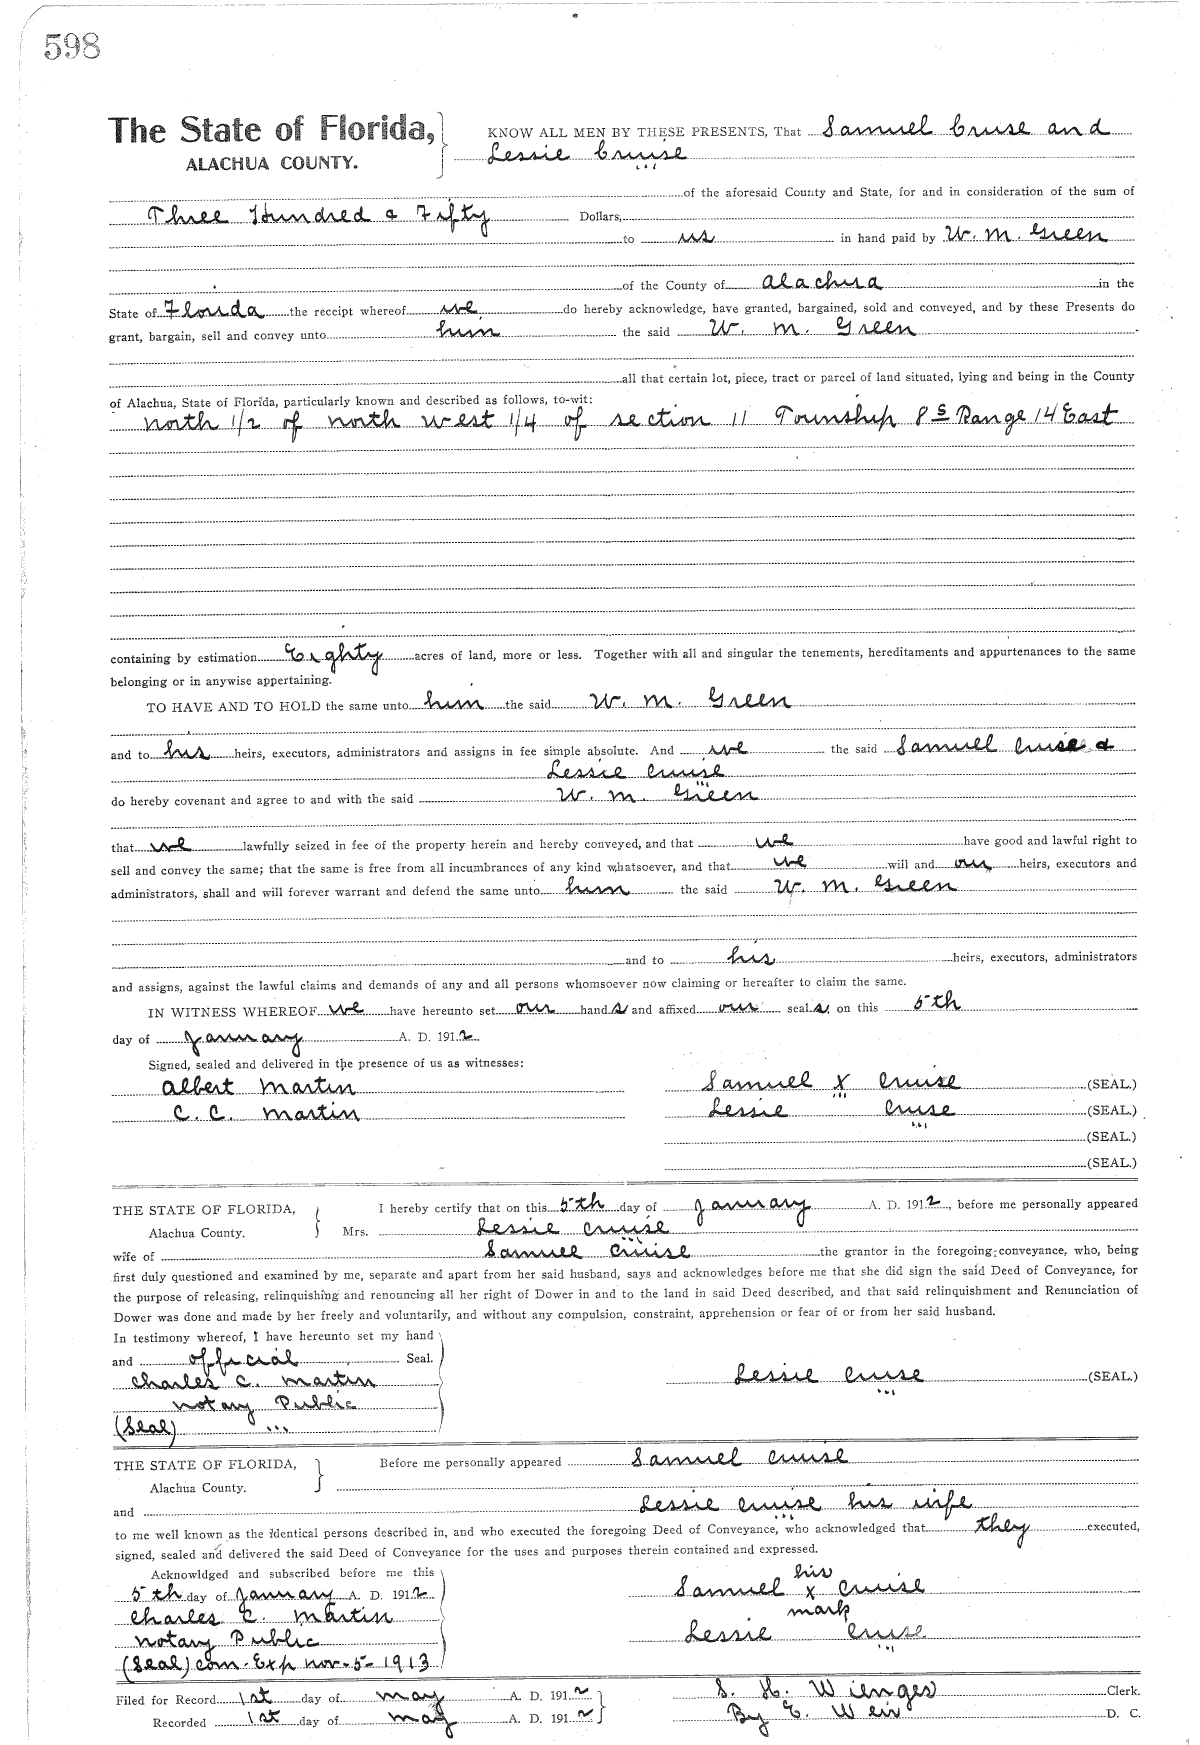 598
The State of Florida,
ALACHUA COUNTY.
KNOW ALL MEN BY THESE PRESENTS, That Samuel Cruse and
Lessie Cruise
of the aforesaid County and State, for and in consideration of the sum of
Three Hundred & Fifty Dollars,
to us in hand paid by W. M. Green
of the County of Alachua in the
State of Florida the receipt whereof we do hereby acknowledge, have granted, bargained, sold and conveyed, and by these Presents do
grant, bargain, sell and convey unto him the said W. M. Green
all that certain lot, piece, tract or parcel of land situated, lying and being in the County
of Alachua, State of Florida, particularly known and described as follows, to-wit:
North 1/2 of North West 1/4 of section 11 Township 8 S Range 14 East
containing by estimation Eighty acres of land, more or less. Together with all and singular the tenements, hereditaments and appurtenances to the same
belonging or in anywise appertaining.
TO HAVE AND TO HOLD the same unto him the said W. M. Green
and to his heirs, executors, administrators and assigns in fee simple absolute. And we the said Samuel Cruise &
Lessie Cruise
do hereby covenant and agree to and with the said W. M. Green
that we lawfully seized in fee of the property herein and hereby conveyed, and that we have good and lawful right to
sell and convey the same; that the same is free from all incumbrances of any kind whatsoever, and that we will and our heirs, executors and
administrators, shall and will forever warrant and defend the same unto him the said W. M. Green
and to his heirs, executors, administrators
and assigns, against the lawful claims and demands of any and all persons whomsoever now claiming or hereafter to claim the same.
IN WITNESS WHEREOF we have hereunto set our hand s and affixed our seal s, on this 5th
day of January A. D. 1912
Signed, sealed and delivered in the presence of us as witnesses:
Albert Martin Samuel X Cruise (SEAL.)
C. C. Martin Lessie Cruse (SEAL.)
(SEAL.)
(SEAL.)
THE STATE OF FLORIDA,
Alachua County.
I hereby certify that on this 5th day of January A. D. 1912, before me personally appeared
Mrs. Lessie Cruise
wife of Samuel Cruise the grantor in the foregoing conveyance, who, being
first duly questioned and examined by me, separate and apart from her said husband, says and acknowledges before me that she did sign the said Deed of Conveyance, for
the purpose of releasing, relinquishing and renouncing all her right of Dower in and to the land in said Deed described, and that said relinquishment and Renunciation of
Dower was done and made by her freely and voluntarily, and without any compulsion, constraint, apprehension or fear of or from her said husband.
In testimony whereof, I have hereunto set my hand
and official Seal.
Charles C. Martin Lessie Cruse (SEAL.)
Notary Public
(Seal)
THE STATE OF FLORIDA,
Alachua County.
Before me personally appeared Samuel Cruise
and Lessie Cruise his wife
to me well known as the identical persons described in, and who executed the foregoing Deed of Conveyance, who acknowledged that they executed,
signed, sealed and delivered the said Deed of Conveyance for the uses and purposes therein contained and expressed.
Acknowldged and subscribed before me this
5th day of January A. D. 1912
Charles C. Martin
Notary Public
(Seal) Com. Exp Nov-5-1913
his
Samuel X Cruise
mark
Lessie Cruse
Filed for Record 1st day of May A. D. 1912 S. H. Wienges Clerk.
Recorded 1st day of May A. D. 1912 By E. Weir D. C.